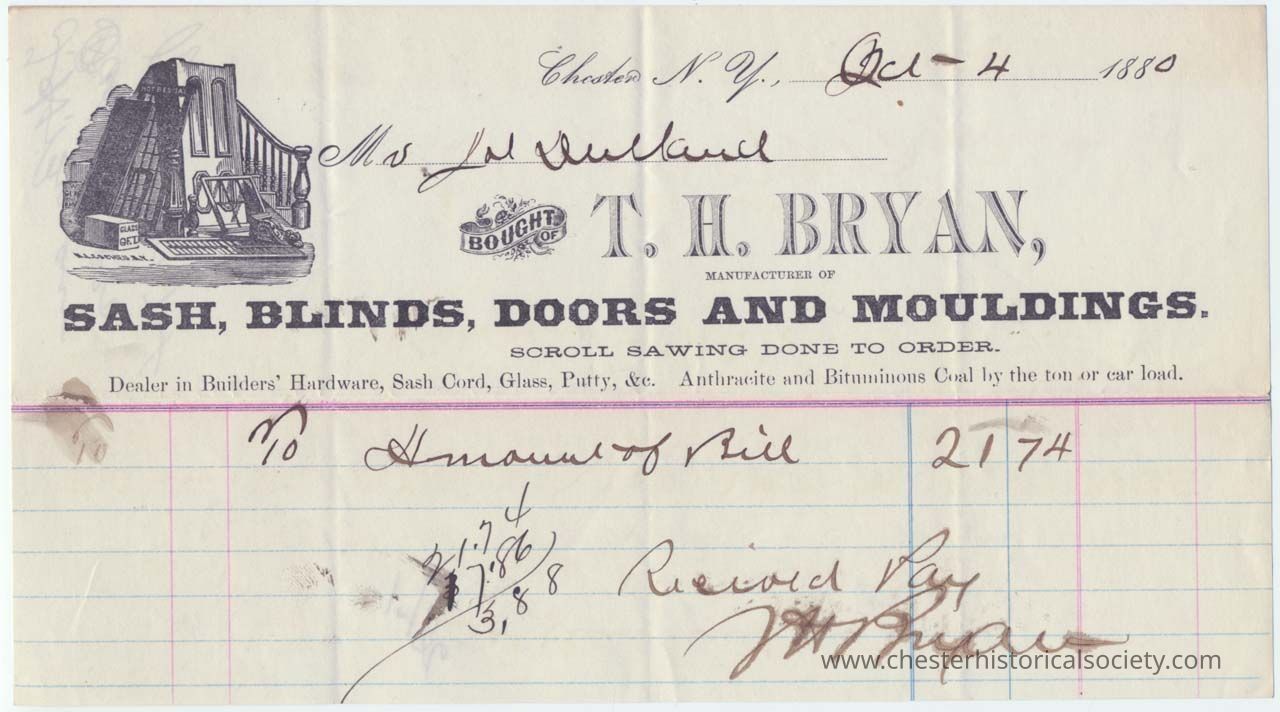 Chester N. Y., Oct - 4 1880
Mr
BOUGHT OF T. H. BRYAN,
MANUFACTURER OF
SASH, BLINDS, DOORS AND MOULDINGS.
SCROLL SAWING DONE TO ORDER.
Dealer in Builders' Hardware, Sash Cord, Glass, Putty, &c. Anthracite and Bituminous Coal by the ton or car load.
Amount of Bill 21 74
21.74
17.86
3,88
Received Pay
T H Bryan
GLASS
www.chesterhistoricalsociety.com